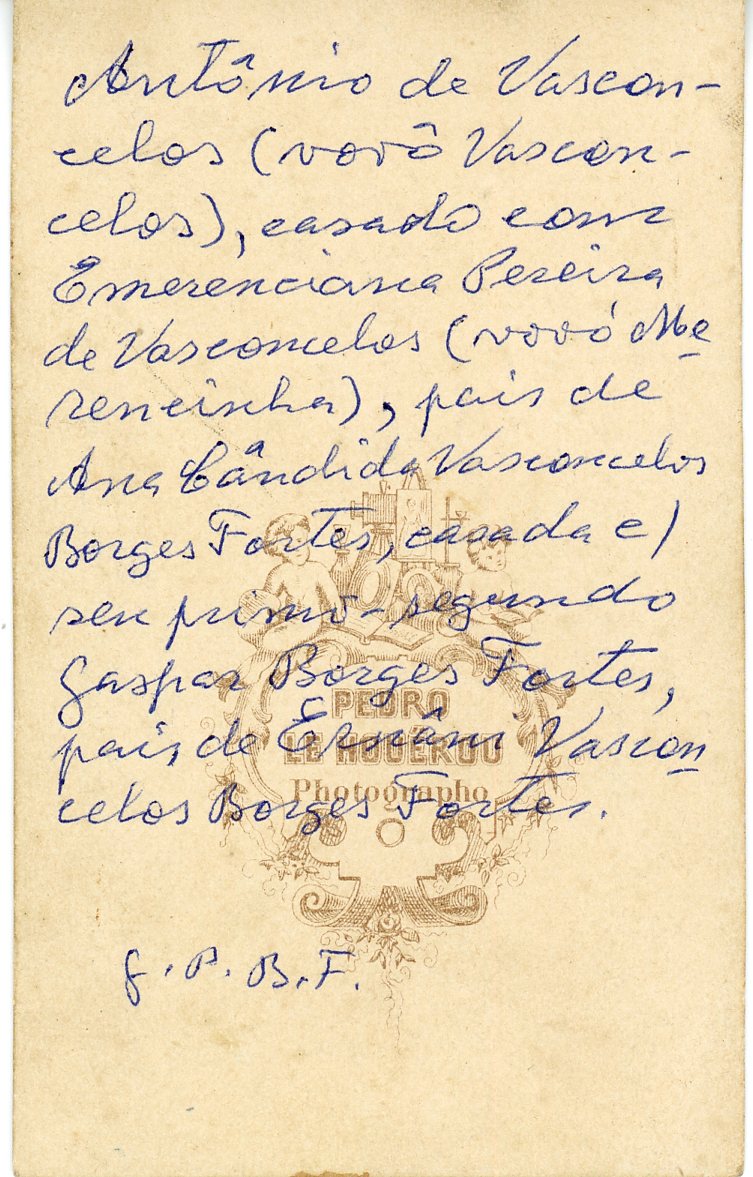 Antônio de Vascon-
celos (vovô Vascon-
celos), casado com
Emerenciana Pereira
de Vasconcelos (vovó Me
renciinha), pais de
Ana Cândida Vasconcelos
Borges Fortes, casada c/
seu primo-segundo
Gaspar Borges Fortes,
pais de Ernâni Vascon
celos Borges Fortes.
PEDRO
LE HOUEROU
Photographo
G.P.B.F.